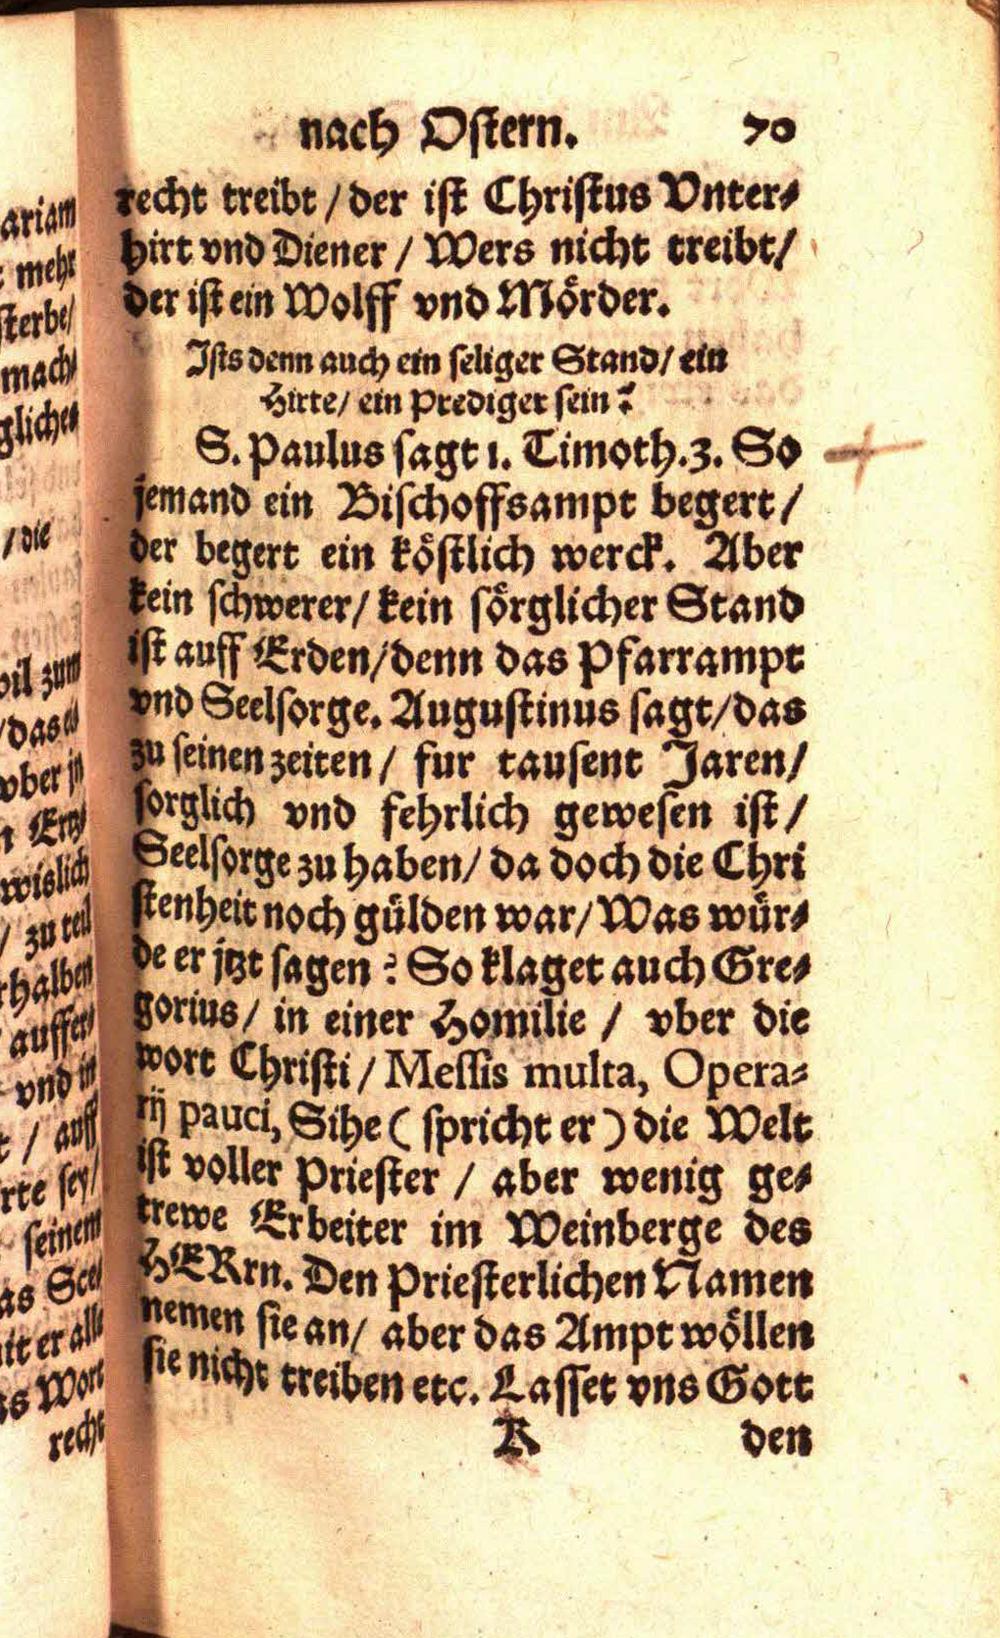 nach Ostern. 70
recht treibt / der ist Christus Vnter-
hirt vnd Diener / Wers nicht treibt /
der ist ein Wolff vnd Mörder.
Ists denn auch ein seliger Stand / ein
Hirte / ein Prediger sein?
S. Paulus sagt 1. Timoth. 3. So
jemand ein Bischoffsampt begert /
der begert ein köstlich werck. Aber
kein schwerer / kein sörglicher Stand
ist auff Erden / denn das Pfarrampt
vnd Seelsorge. Augustinus sagt / das
zu seinen zeiten / fur tausent Jaren /
sorglich vnd fehrlich gewesen ist /
Seelsorge zu haben / da doch die Chri
stenheit noch gülden war / Was wür-
de er jtzt sagen? So klaget auch Gre-
gorius / in einer Homilie / vber die
wort Christi / Messis multa, Opera-
rij pauci, Sihe ( spricht er ) die Welt
ist voller Priester / aber wenig ge-
trewe Erbeiter im Weinberge des
HERrn. Den Priesterlichen Namen
nemen sie an / aber das Ampt wöllen
sie nicht treiben etc. Lasset vns Gott
K den
ariam
mehr
sterbe /
mach-
gliches
/ die
vil zum
/ das
vber jn
wislich
/ zu teil
rhalben
auffer-
vnd in
/ auff
rte sey /
seinem
as
it er alle
Wort
recht